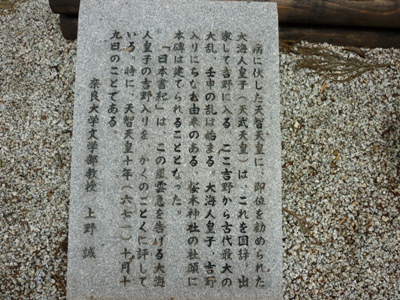 病に伏した天智天皇に、即位を勧められた
大海人皇子（天武天皇）は、これを固辞、出
家して吉野に入る。ここ吉野から古代最大の
大乱、壬申の乱は始まる。大海人皇子、吉野
入りにちなむ由来のある、桜木神社の社頭に
本碑は建てられることとなった。
「日本書紀」は、この風雲急を告げる大海
人皇子の吉野入りを、かくのごとくに評して
いる。時に、天智天皇十年（六七一）十月十
九日のことである。
奈良大学文学部教授　上野　誠